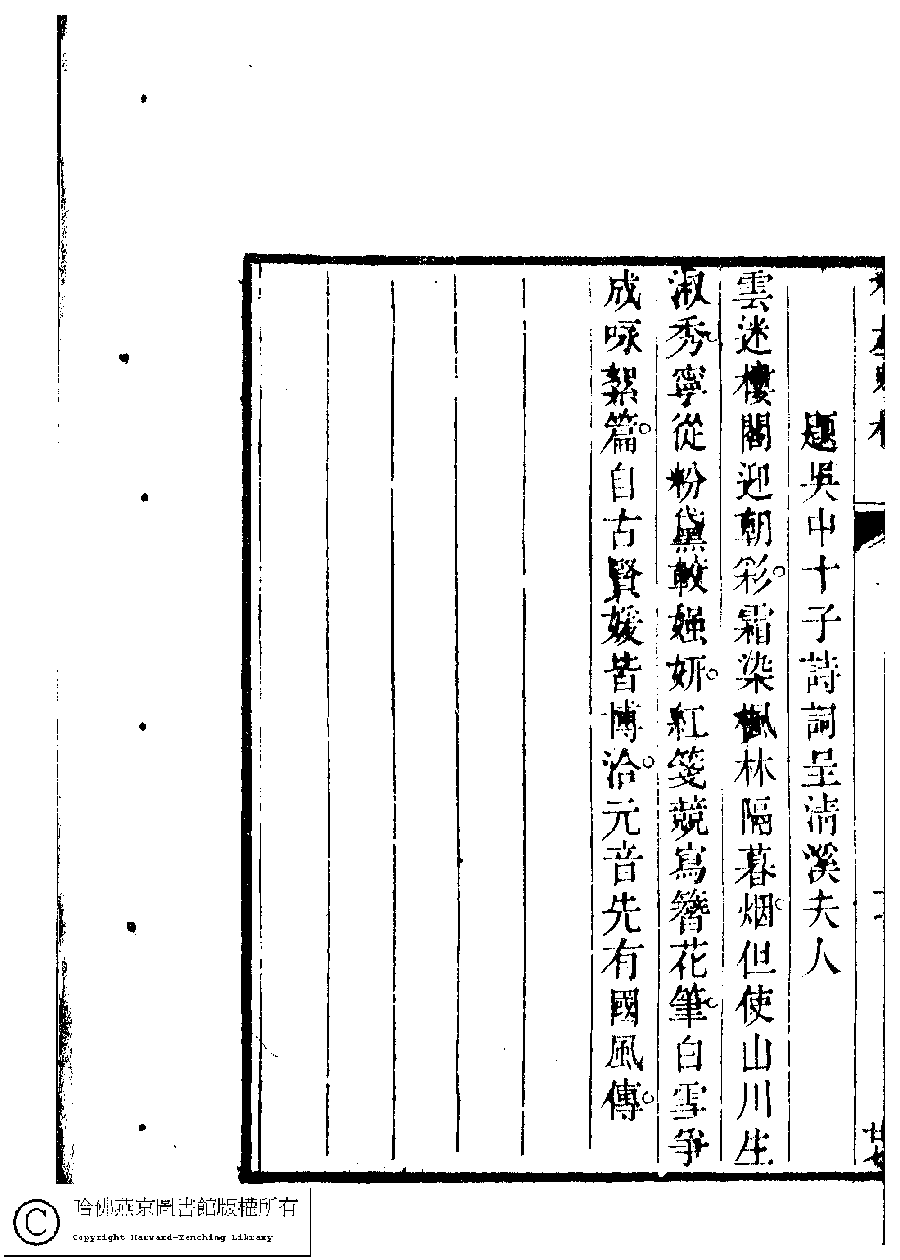 題吳中十子詩詞呈清溪夫人
雲迷樓閣迎朝彩。霜染楓林隔暮烟。但使山川生
淑秀。寧從粉黛較媸妍。紅箋競寫簪花筆。白雪爭
成咏絮篇。自古賢媛皆博洽。元音先有國風傳。
哈佛燕京圖書館版權所有
Copyright Harvard-Yenching Library